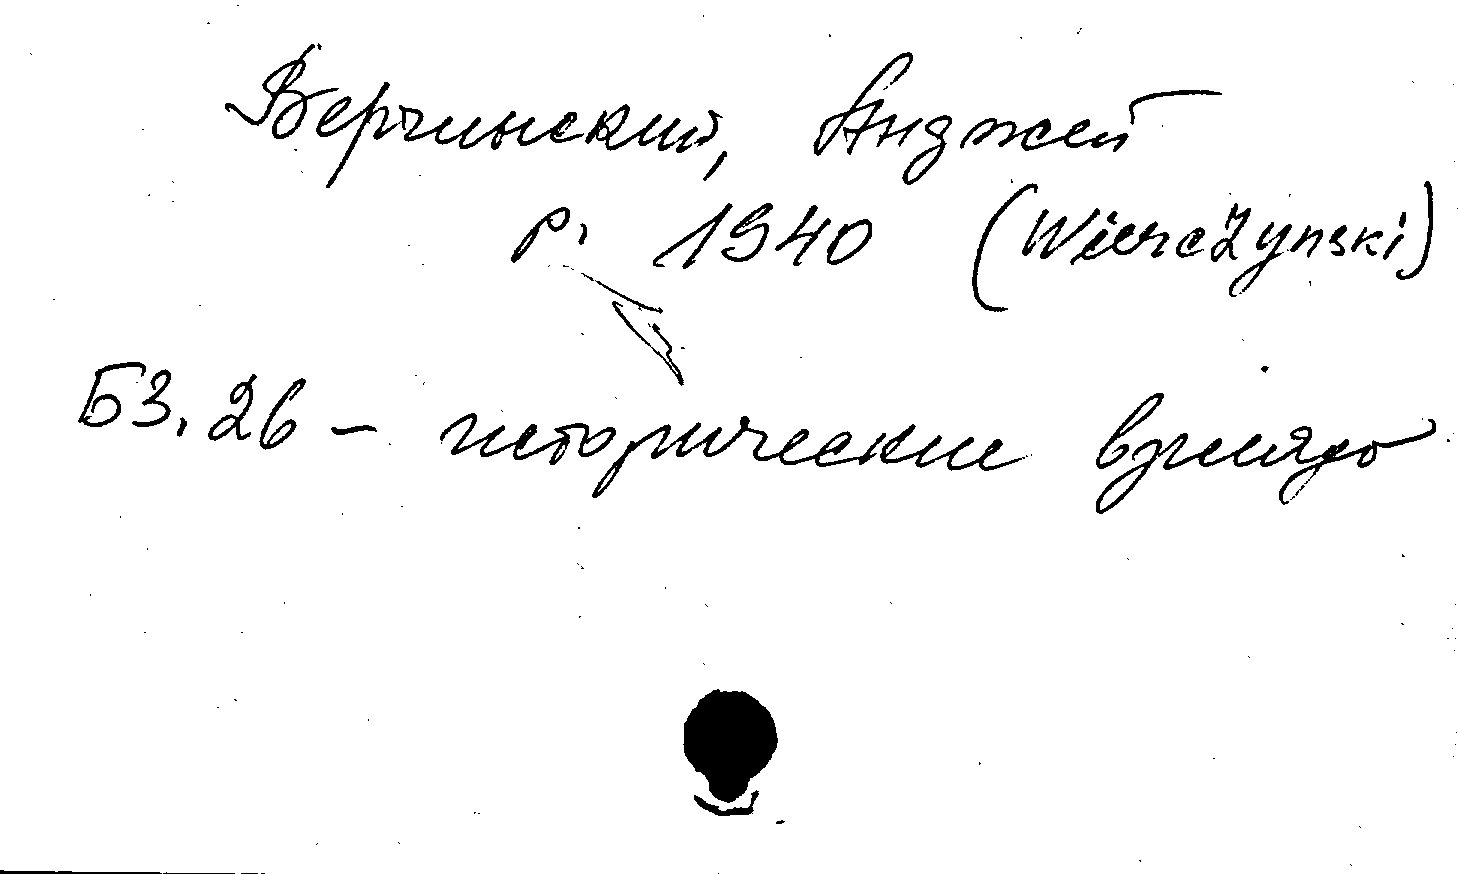 Верчинский, Анджей
р. 1940 (Wierczynski)
Б3.26 - исторические взгляды